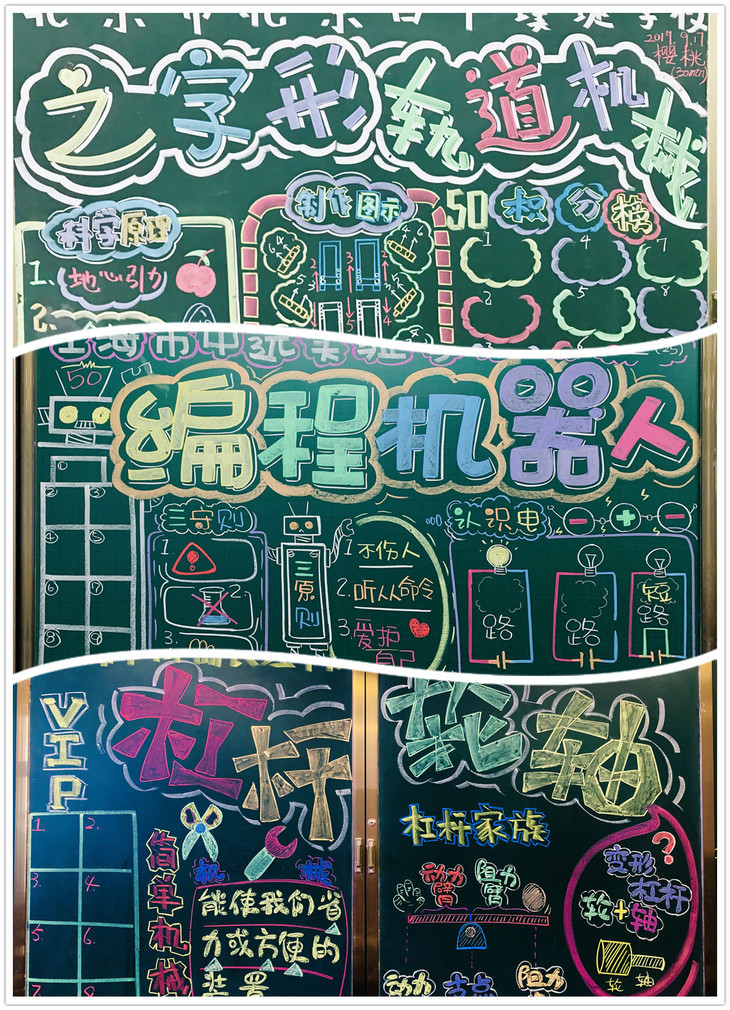 2019.9.17
樱桃
(30min)
之字形轨道机械
科学原理
1. 地心引力
2.
制作图示
6 4 2
3
5 4
50 积分榜
1 4 7
2 5 8
50
编程机器人
① ②
③ ④
⑤ ⑥
⑦
⑧
三守则
1.
2
3.
三原则
1 不伤人
2. 听从命令
3. 爱护
自己
认识电
- + -
路
路
短路
VIP
1. 2.
3. 4.
5. 6.
7 8
杠杆
简单机械
机械
能使我们省
力或方便的
装置
轮轴
杠杆家族
动力臂
阻力臂
动力
支点
阻力
变形
杠杆
?
轮+轴
轮 轴